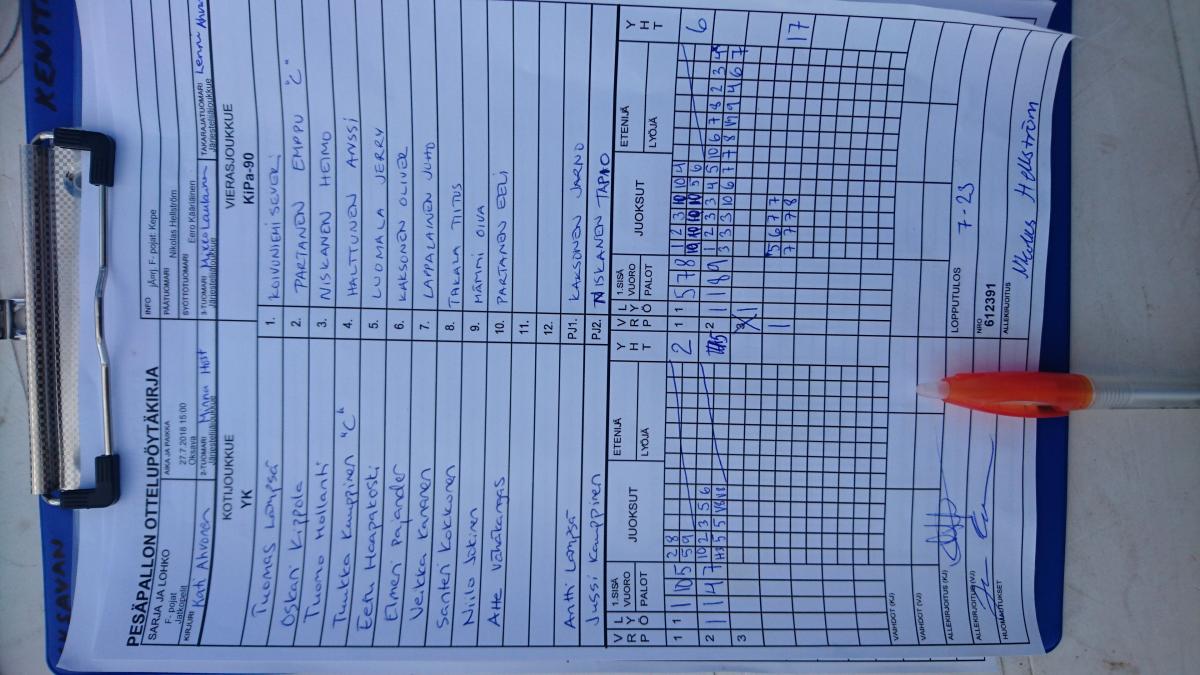 KENTTÄ
KSAVAN
PESÄPALLON OTTELUPÖYTÄKIRJA
SARJA JA LOHKO
F- pojat
Jatkopelit
AIKA JA PAIKKA
27.7.2018 15:00
Oksava
INFO jÄrrj. F- pojat: Kepe
PÄÄTUOMARI Nikolas Hellström
SYÖTTÖTUOMARI Eero Kääriäinen
KIRJURI Kati Ahvonen
2-TUOMARI Minna Höst
Järjestelijäjoukkue
3-TUOMARI Mikko Lautanen
Järjestelijäjoukkue
TAKARAJATUOMARI Lenni
Järjestelijäjoukkue
KOTIJOUKKUE
YK
VIERASJOUKKUE
KiPa-90
Tuomas Lämpsä 1. KOIVUNIEMI SEVERI
Oskari Kippola 2. PARTANEN EMPPU "C"
Tuomo Hollanti 3. NISKANEN HEIMO
Tuukka Kauppinen "C" 4. HALTTUNEN ANSSI
Eetu Haapakoski 5. LUOMALA JERRY
Elmeri Pajander 6. KAKSONEN OLIVER
Veikka Kananen 7. LAPPALAINEN JUHO
Santeri Kokkonen 8. TAKALA TIITUS
Niilo Jokinen 9. HÄMMI OIVA
Atte Vähäkangas 10. PARTANEN EELI
11.
12.
Antti Lämpsä PJ1. KAKSONEN JARNO
Jussi Kauppinen PJ2. NISKANEN TAPAO
VRP LYÖ 1.SISÄ VUORO PALOT JUOKSUT ETENIJÄ LYÖJÄ YHT VRP LYÖ 1.SISÄ VUORO PALOT JUOKSUT ETENIJÄ LYÖJÄ YHT
1 1 1 10 5 2 8 2 1 1 5 7 8 1 2 3 10 10 4 6
5 9 10 10 10 10 5 6
2 1 1 4 7 10 2 3 5 6 5 2 1 1 8 9 1 2 3 3 4 5 10 6 7 8 2 3 4
3 3 3 10 6 7 7 8
3 3 1
1 5 6 7 7 17
7 7 7 8
VAIHDOT (KJ)
VAIHDOT (VJ)
ALLEKIRJOITUS (KJ)
ALLEKIRJOITUS (VJ)
HUOMAUTUKSET
LOPPUTULOS 7-23
NRO
612391
ALLEKIRJOITUS
Nikolas Hellström